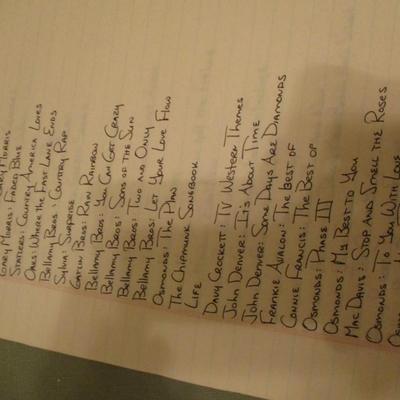 Gary Morris
Gary Morris: Faded Blue
Statlers: Country America Loves
Oaks: Where the Fast Lane Ends
Bellamy Bros: Country Rap
Sylvia: Surprise
Gatlin Bros: Rain Rainbow
Bellamy Bros: You Can Get Crazy
Bellamy Bros: Sons of the Sun
Bellamy Bros: Two and Only
Bellamy Bros: Let Your Love Flow
Osmonds: The Plan
The Chipmunk Songbook
Life
Davy Crockett: TV Western Themes
John Denver: It's About Time
John Denver: Some Days Are Diamonds
Frankie Avalon: The Best of
Connie Francis: The Best of
Osmonds: Phase III
Osmonds: My Best to You
Mac Davis: Stop and Smell the Roses
Osmonds: To You With Love